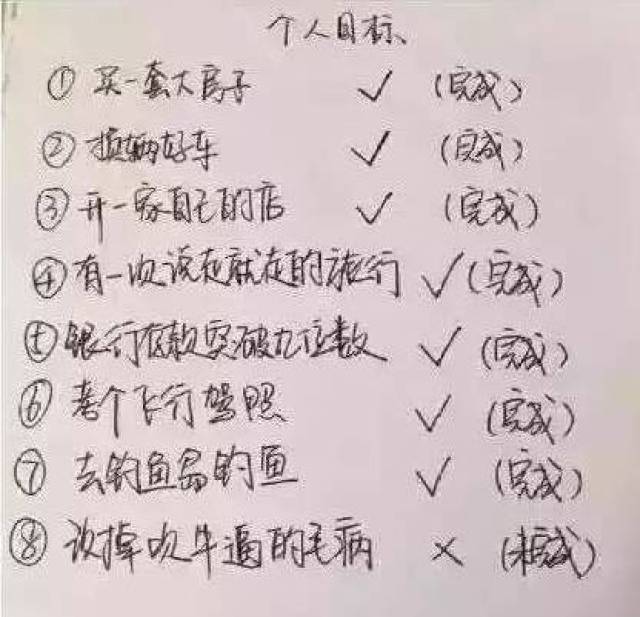 个人目标、
① 买一套大房子 ✓ (完成)
② 换辆好车 ✓ (完成)
③ 开一家自己的店 ✓ (完成)
④ 有一次说走就走的旅行 ✓ (完成)
⑤ 银行存款突破九位数 ✓ (完成)
⑥ 考个飞行驾照 ✓ (完成)
⑦ 去钓鱼岛钓鱼 ✓ (完成)
⑧ 改掉吹牛逼的毛病 × (未完成)